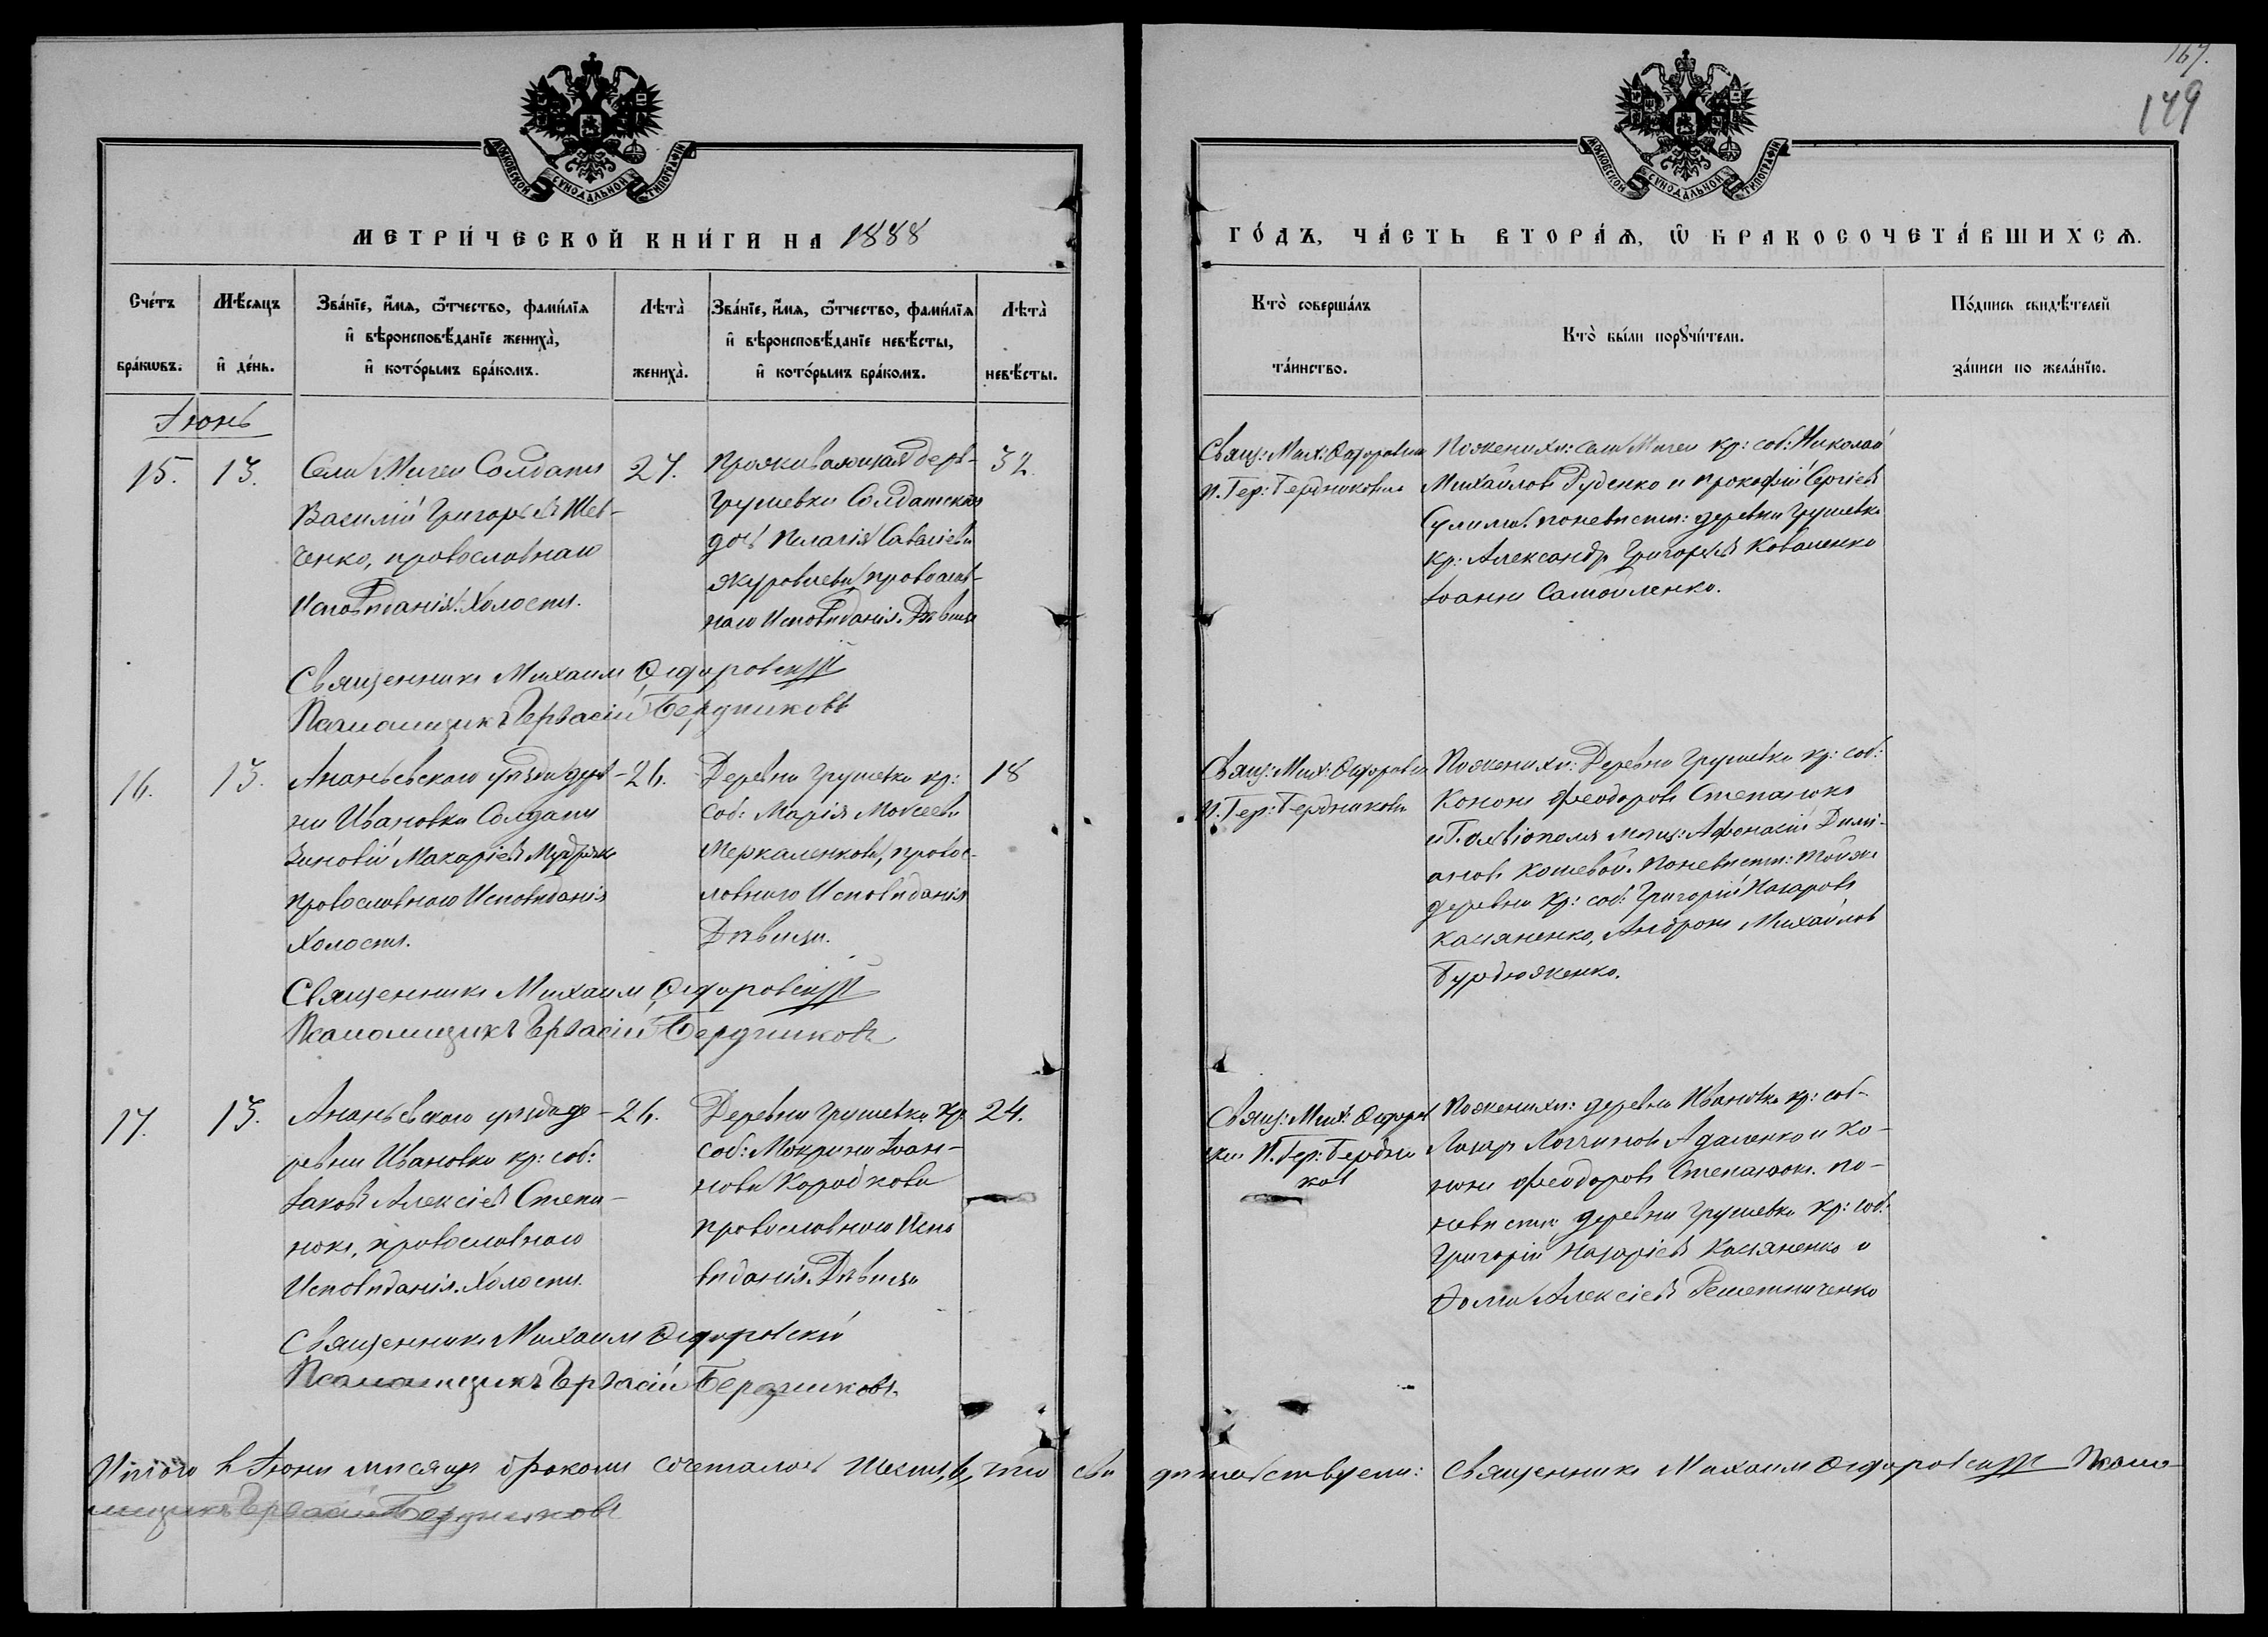 167.
149
МОСКОВСКОЙ СѴНОДАЛЬНОЙ ТИПОГРАФІИ
МОСКОВСКОЙ СѴНОДАЛЬНОЙ ТИПОГРАФІИ
МЕТРИ́ЧЕСКОЙ КНИ́ГИ НА 1888
ГО́ДЪ, ЧА́СТЬ ВТОРА́Ѧ, Ѿ БРАКОСОЧЕТА́ВШИХСѦ.
Сче́тъ бра́кѡвъ.
Мѣ́сяцъ и҆ де́нь.
Зва́нїе, и҆́мя, ѻ҆́тчество, фами́лїя
и҆ вѣроисповѣ́данїе жениха̀,
и҆ кото́рымъ бра́комъ.
Лѣта̀ жениха̀.
Зва́нїе, и҆́мя, ѻ҆́тчество, фами́лїя
и҆ вѣроисповѣ́данїе невѣ́сты,
и҆ кото́рымъ бра́комъ.
Лѣта̀ невѣ́сты.
Кто̀ соверша́лъ
та́инство.
Кто̀ бы́ли порꙋчи́тели.
По́дпись свидѣ́телей
за́писи по жела́нїю.
Іюнь
15.
13.
Села Мигеи Солдатъ
Василій Григорьевъ Шев-
ченко, православнаго
Исповѣданія. Холостъ.
27.
Проживающая дерев-
Грушевки Солдатская
дочь Пелагія Савасіева
Журавлева, православ-
наго Исповѣданія. Дѣвица
32.
Свящ: Мих: Ѳедоровскій
П. Гер: Бердниковъ
По женихѣ: села Мигеи кр: соб: Николай
Михайловъ Руденко и Прокофій Сергіевъ
Сулима. по невѣстѣ: деревни Грушевки
кр: Александръ Григорьевъ Коваленко
Іоаннъ Самойленко.
Священникъ Михаилъ Ѳедоровскій
Псаломщикъ Гервасій Бердниковъ
16.
13.
Ананьевскаго уѣзда дерев-
ни Ивановки Солдатъ
Зиновій Макаріевъ
православнаго Исповѣданія
Холостъ.
26.
Деревни Грушевки кр:
соб: Марія Моисеева
Меркаленкова, правос-
лавнаго Исповѣданія
Дѣвица.
18
Свящ: Мих: Ѳедоровскій
П. Гер: Бердниковъ
По женихѣ: Деревни Грушевки кр: соб:
Кононъ Феодоровъ Степанюкъ
и Г. Ольвіополя мѣщ: Афанасій
Кошевой. По невѣстѣ: той же
деревни кр: соб: Григорій Назаровъ
Касяненко, Андронъ Михайловъ
Бурдюженко.
Священникъ Михаилъ Ѳедоровскій
Псаломщикъ Гервасій Бердниковъ
17.
13.
Ананьевскаго уѣзда де-
ревни Ивановки кр: соб:
Іаковъ Алексіевъ Степа-
нюкъ, православнаго
Исповѣданія. Холостъ.
26.
Деревни Грушевки кр.
соб: Мокрина Іоан-
нова Коробкова
православнаго Испо
вѣданія. Дѣвица
24.
Свящ: Мих: Ѳедоров
скій П. Гер: Бердни
ковъ
По женихѣ: деревни Ивановки кр: соб-
Лазарь Логгиновъ Адаменко и Ко-
нонъ Феодоровъ Степанюкъ. по-
невѣстѣ: деревни Грушевки кр: соб:
Григорій Назаріевъ Касяненко и
Ѳома Алексіевъ Решетниченко
Священникъ Михаилъ Ѳедоровскій
Псаломщикъ Гервасій Бердниковъ.
Итого в Іюнѣ мѣсяцѣ бракомъ сочеталось шесть, 6, что сви дѣтельствуемъ: Священникъ Михаилъ Ѳедоровскій Псало-
мщикъ Гервасій Бердниковъ